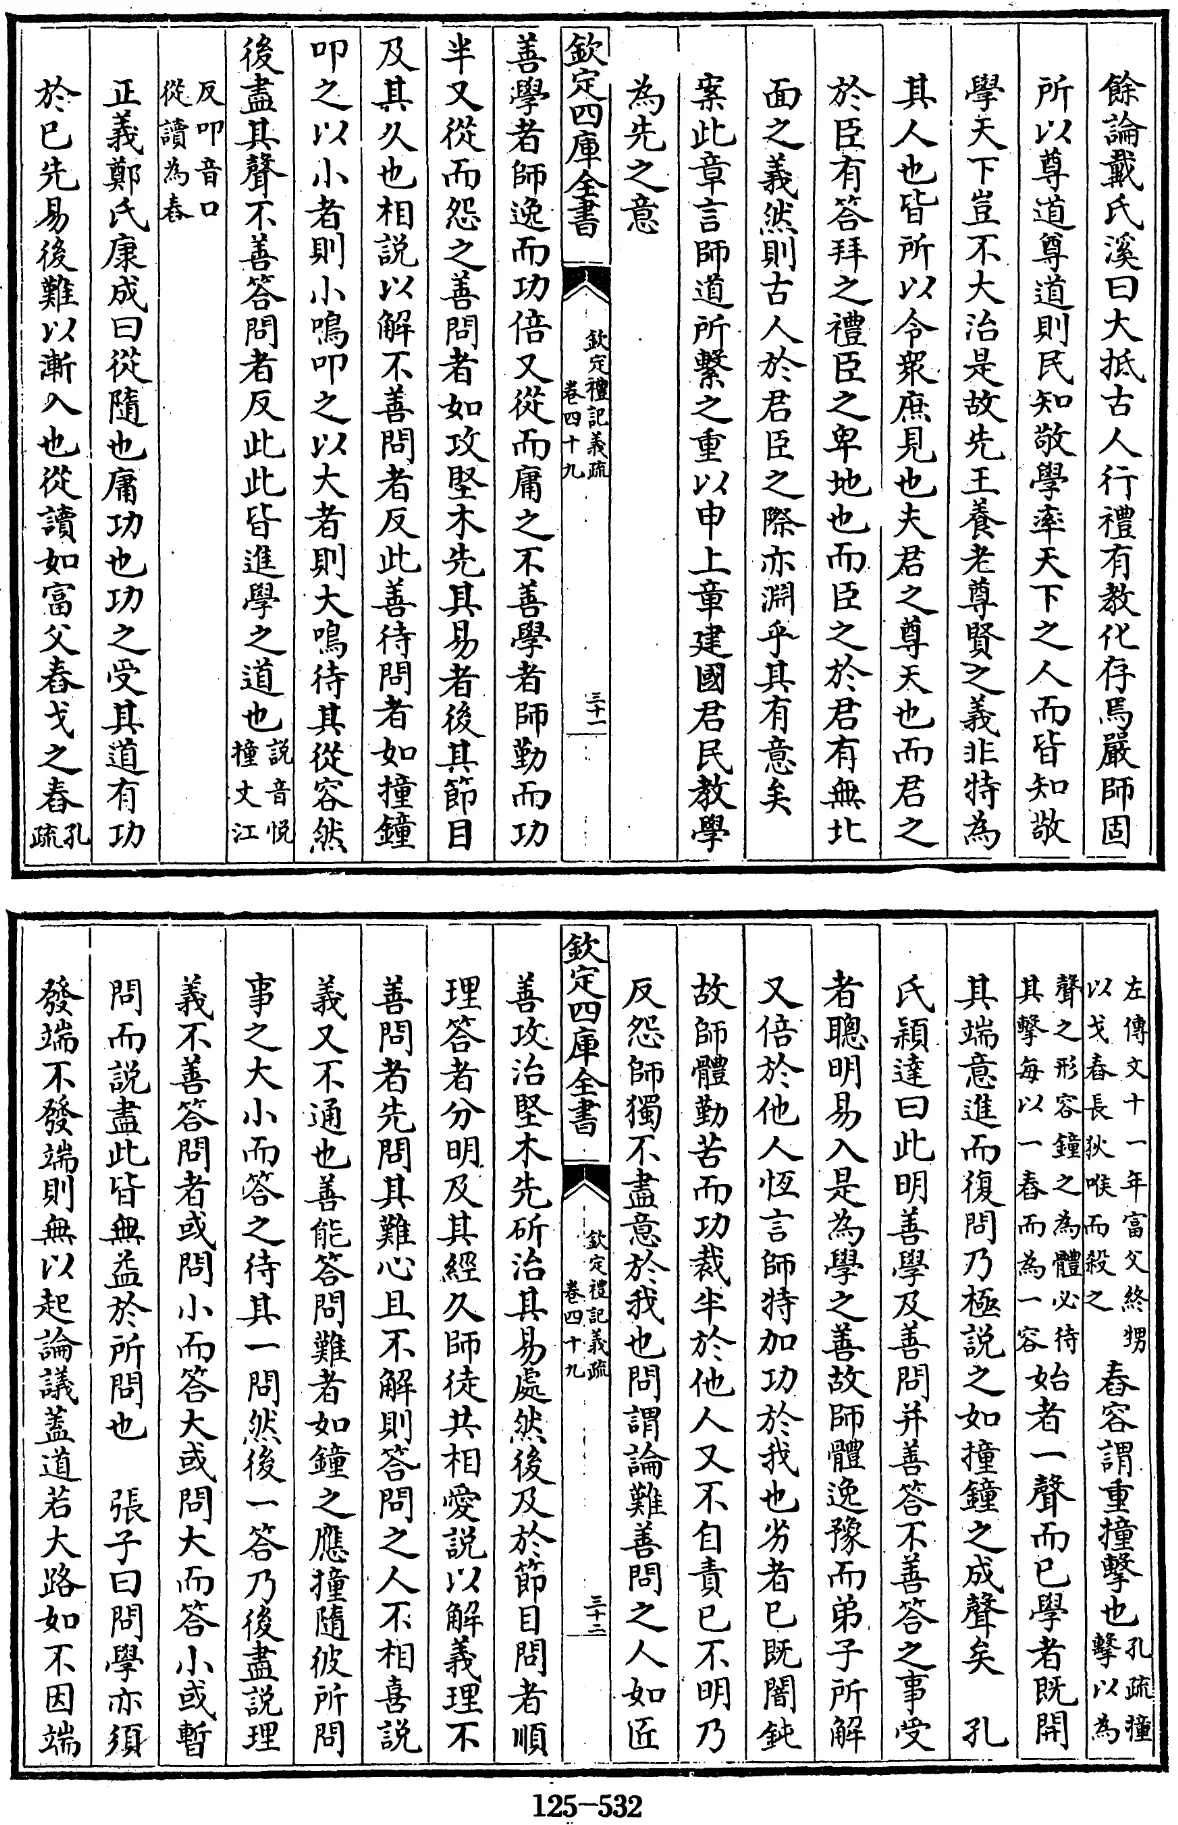 餘論戴氏溪曰大抵古人行禮有教化存焉嚴師固
所以尊道尊道則民知敬學率天下之人而皆知敬
學天下豈不大治是故先王養老尊賢之義非特為
其人也皆所以令衆庶見也夫君之尊天也而君之
於臣有答拜之禮臣之卑地也而臣之於君有無北
面之義然則古人於君臣之際亦淵乎其有意矣
案此章言師道所繫之重以申上章建國君民教學
為先之意
欽定四庫全書
欽定禮記義疏
卷四十九
三十一
善學者師逸而功倍又從而庸之不善學者師勤而功
半又從而怨之善問者如攻堅木先其易者後其節目
及其久也相説以解不善問者反此善待問者如撞鐘
叩之以小者則小鳴叩之以大者則大鳴待其從容然
後盡其聲不善答問者反此此皆進學之道也
説音悦
撞丈江
反叩音口
從讀為舂
正義鄭氏康成曰從隨也庸功也功之受其道有功
於已先易後難以漸入也從讀如富父舂戈之舂
孔
疏
左傳文十一年富父終甥
以戈舂長狄喉而殺之
舂容謂重撞擊也
孔疏撞
擊以為
聲之形容鐘之為體必待
其擊每以一舂而為一容
始者一聲而已學者既開
其端意進而復問乃極説之如撞鐘之成聲矣　孔
氏穎達曰此明善學及善問并善答不善答之事受
者聰明易入是為學之善故師體逸豫而弟子所解
又倍於他人恆言師特加功於我也劣者已既闇鈍
故師體勤苦而功裁半於他人又不自責已不明乃
反怨師獨不盡意於我也問謂論難善問之人如匠
欽定四庫全書
欽定禮記義疏
卷四十九
三十二
善攻治堅木先斫治其易處然後及於節目問者順
理答者分明及其經久師徒共相愛説以解義理不
善問者先問其難心且不解則答問之人不相喜説
義又不通也善能答問難者如鐘之應撞隨彼所問
事之大小而答之待其一問然後一答乃後盡説理
義不善答問者或問小而答大或問大而答小或暫
問而説盡此皆無益於所問也　張子曰問學亦須
發端不發端則無以起論議蓋道若大路如不因端
125-532